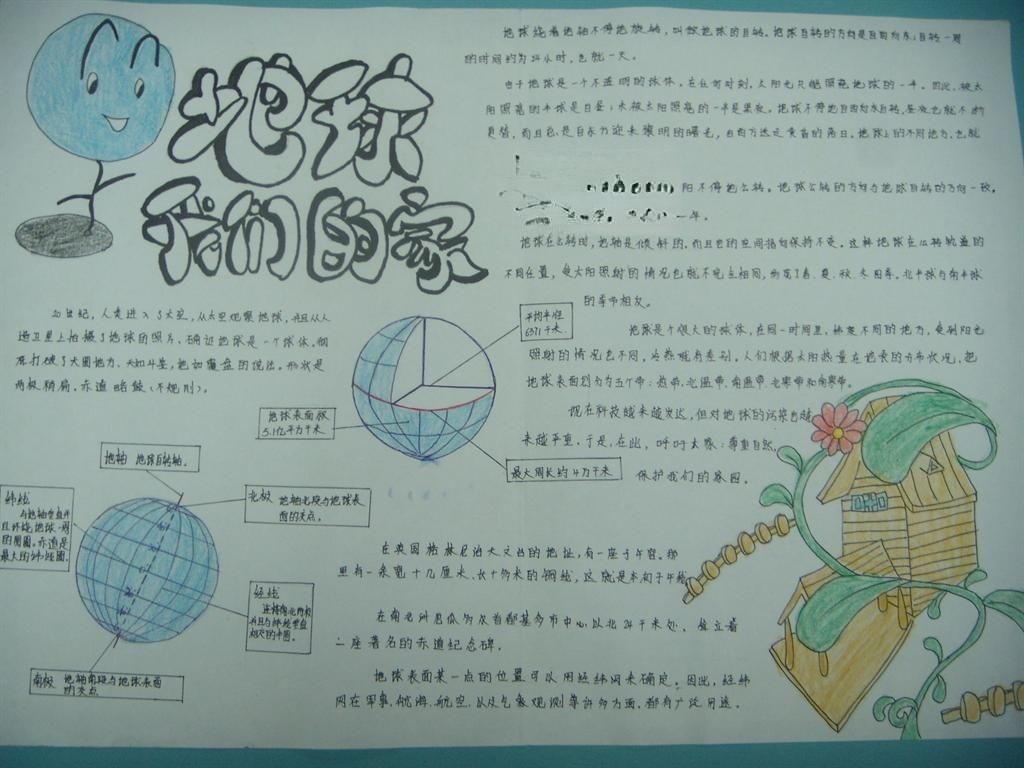 地球
我们的家
地球绕着地轴不停地旋转，叫做地球的自转。地球自转的方向是自西向东；自转一周
的时间约为24小时，也就一天。
由于地球是一个不透明的球体，在任何时刻，太阳光只能照亮地球的一半。因此，被太
阳照亮的半球是白昼；未被太阳照亮的一半是黑夜。地球不停地自西向东自转，昼夜也就不断
更替，而且总是自东方迎来黎明的曙光，由西方送走黄昏的落日。地球上的不同地方，也就
阳不停地公转。地球公转的方向与地球自转的方向一致。
一年。
地球在公转时，地轴是倾斜的，而且它的空间指向保持不变。这样地球在公转轨道的
不同位置，受太阳照射的情况也就不完全相同，形成了春、夏、秋、冬四季。北半球与南半球
的季节相反。
地球是个很大的球体，在同一时间里，纬度不同的地方，受到阳光
照射的情况也不同，冷热就有差别。人们根据太阳热量在地表的分布状况，把
地球表面划分为五个带：热带、北温带、南温带、北寒带和南寒带。
现在科技越来越发达，但对地球的污染也越
来越严重。于是，在此，呼吁大家：尊重自然，
保护我们的家园。
20世纪，人类进入了太空，从太空观察地球，并且从人
造卫星上拍摄了地球的照片，确证地球是一个球体，彻
底打破了天圆地方、天如斗笠，地如覆盘的说法。形状是
两极稍扁，赤道略鼓（不规则）。
平均半径
6371千米
地球表面积
5.1亿平方千米
最大周长约4万千米
地轴 地球自转轴。
北极 地轴北段与地球表
面的交点。
纬线
与地轴垂直并
且环绕地球一周
的圆圈。赤道是
最大的纬线圈。
经线
连接南北两极
并且与纬线垂直
相交的半圆。
南极 地轴南段与地球表面
的交点
在英国格林尼治天文台的地址，有一座子午宫，那
里有一条宽十几厘米、长十多米的铜线，这就是本初子午线
在南美洲厄瓜多尔首都基多市中心以北24千米处，耸立着
一座著名的赤道纪念碑。
地球表面某一点的位置可以用经纬网来确定。因此，经纬
网在军事、航海、航空，以及气象观测等许多方面，都有广泛用途。